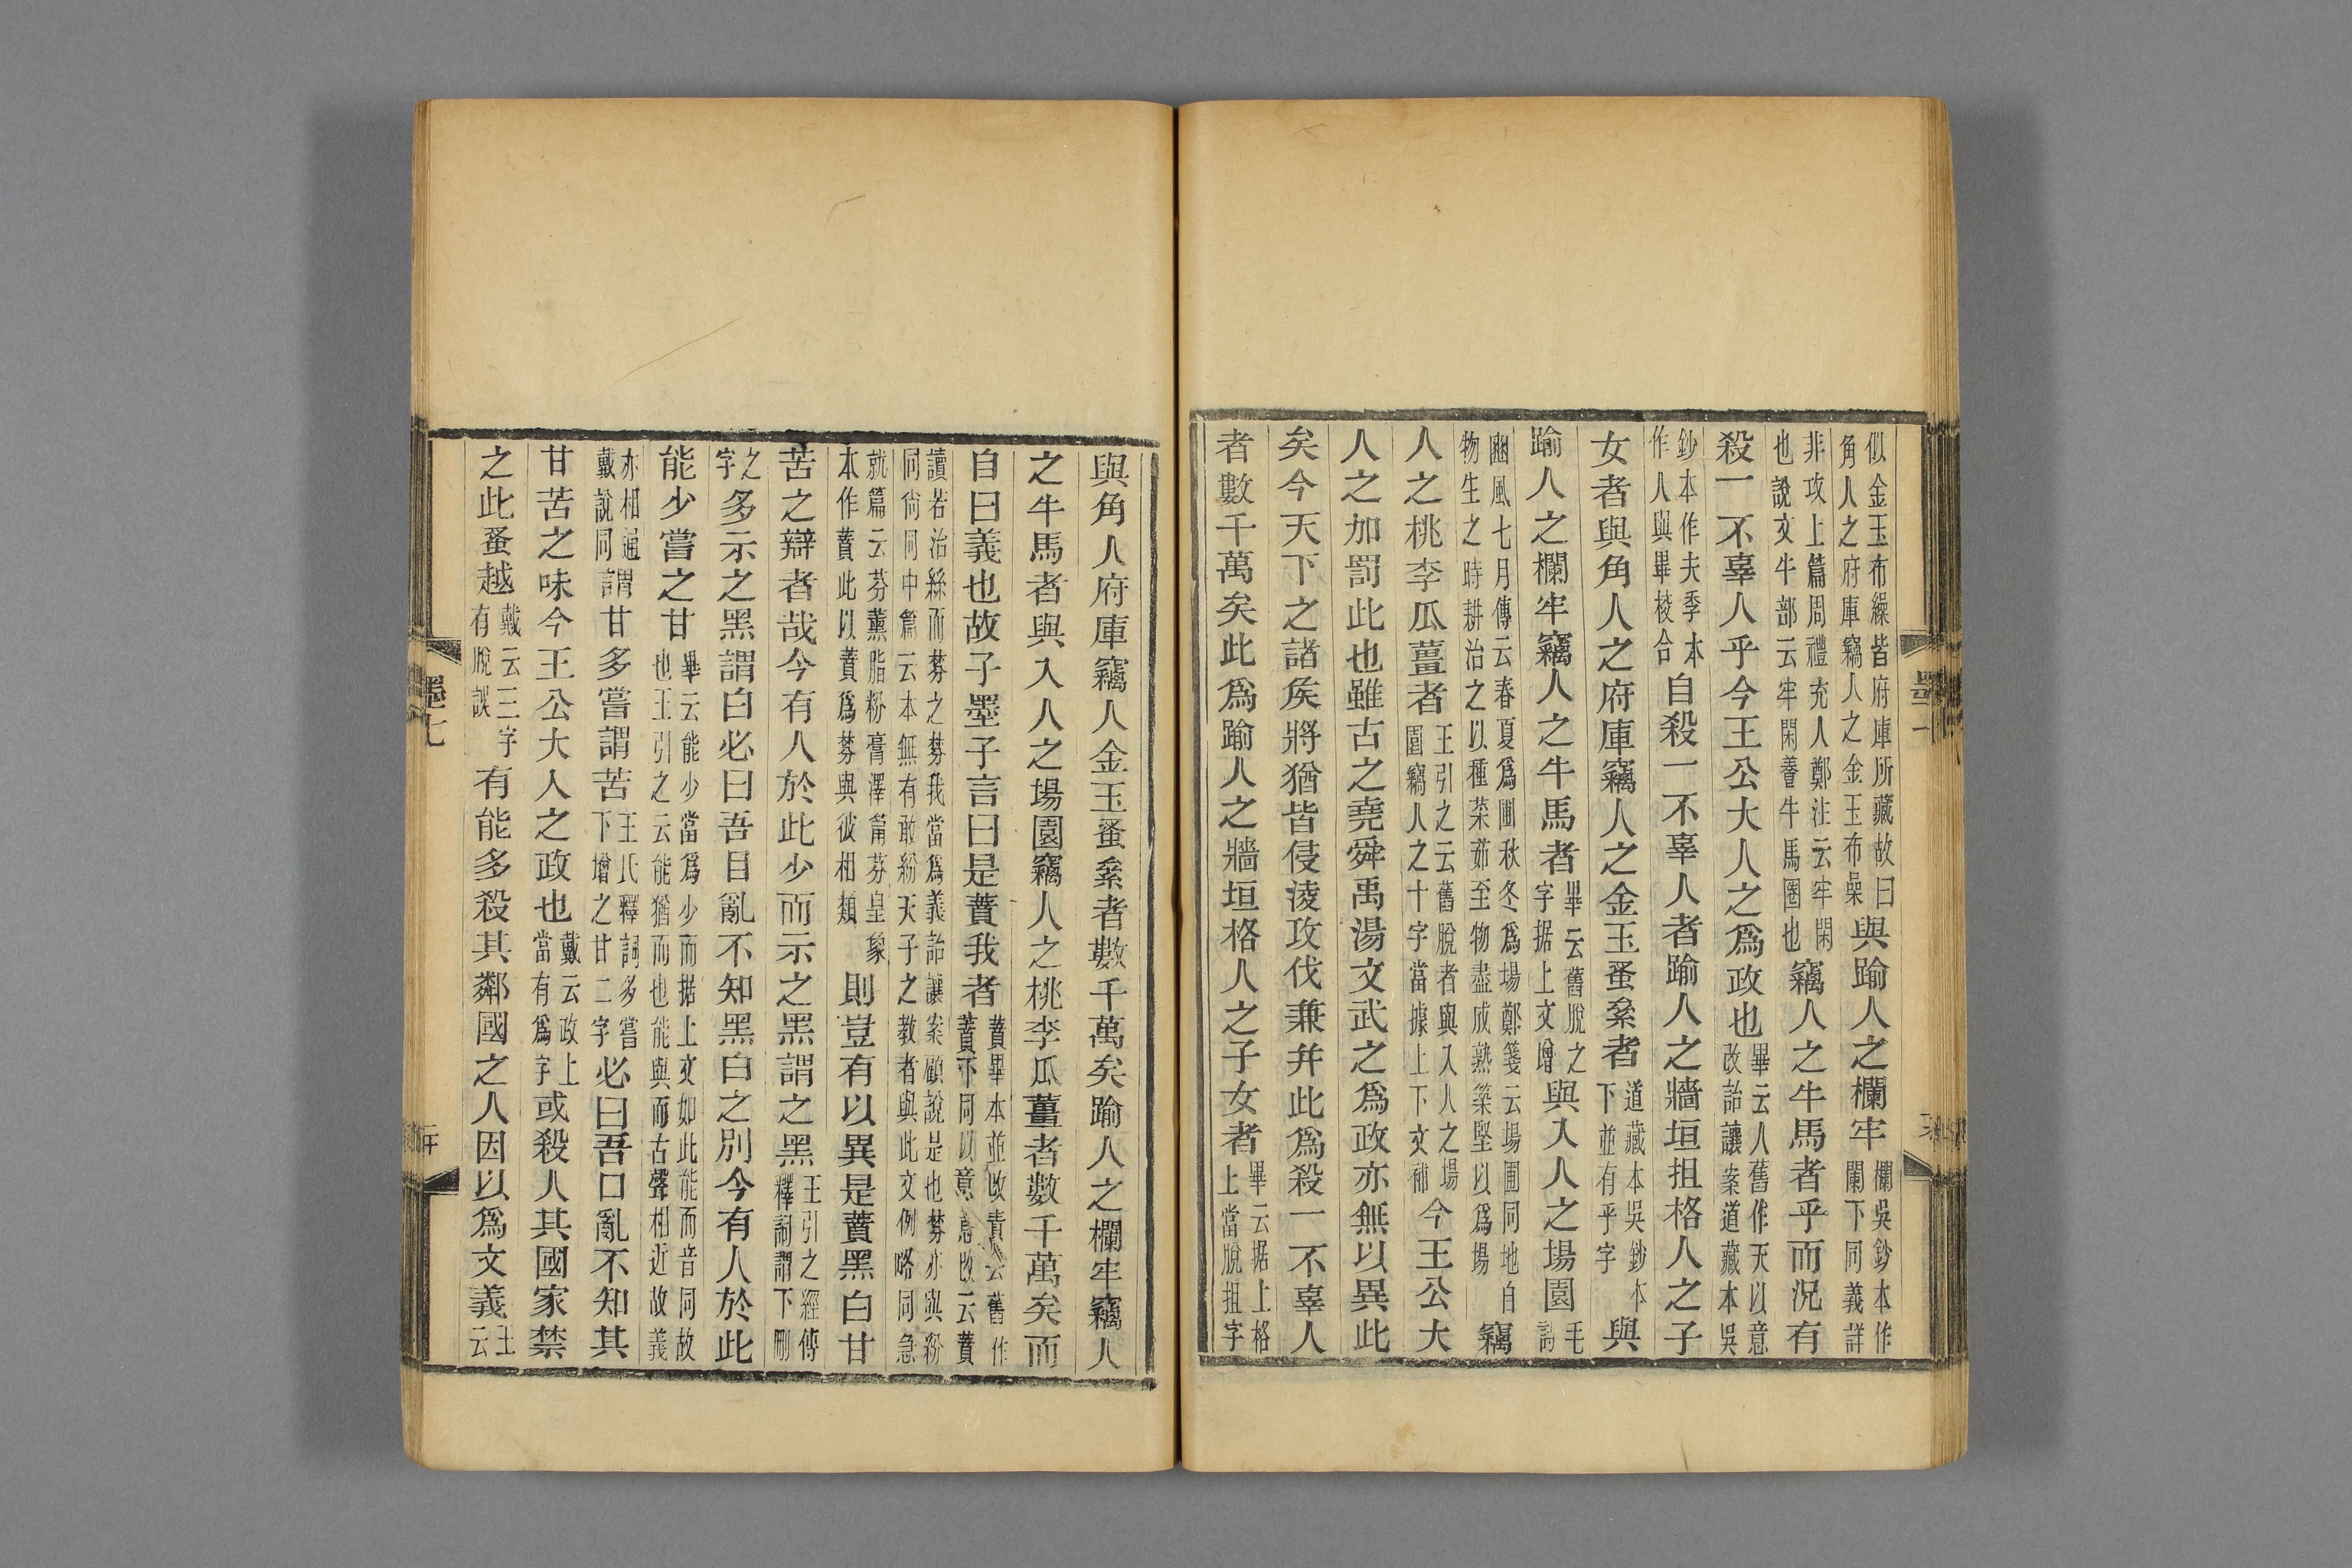 似金玉布繰皆府庫所藏故曰角人之府庫竊人之金玉布喿與踰人之欄牢欄吳鈔本作闌下同義詳
非攻上篇周禮充人鄭注云牢閑也說文牛部云牢閑養牛馬圈也竊人之牛馬者乎而況有
殺一不辜人乎今王公大人之爲政也畢云人舊作天以意改詒讓案道藏本吳
鈔本作夫季本作人與畢校合自殺一不辜人者踰人之牆垣抯格人之子
女者與角人之府庫竊人之金玉蚤絫者道藏本吳鈔本下並有乎字與
踰人之欄牢竊人之牛馬者畢云舊脫之字据上文增與入人之場園毛詩
豳風七月傳云春夏爲圃秋冬爲場鄭箋云場圃同地自物生之時耕治之以種菜茹至物盡成熟築堅以爲場竊
人之桃李瓜薑者王引之云舊脫者與入人之場園竊人之十字當據上下文補今王公大
人之加罰此也雖古之堯舜禹湯文武之爲政亦無以異此
矣今天下之諸矦將猶皆侵淩攻伐兼幷此爲殺一不辜人
者數千萬矣此爲踰人之牆垣格人之子女者畢云据上格上當脫抯字
與角人府庫竊人金玉蚤絫者數千萬矣踰人之欄牢竊人
之牛馬者與入人之場園竊人之桃李瓜薑者數千萬矣而
自曰義也故子墨子言曰是蕡我者蕡畢本並改責云舊作蕡下同以意改云蕡
讀若治絲而棼之棼我當爲義詒讓案顧說是也棼亦與紛同尙同中篇云本無有敢紛天子之教者與此文例略同急
就篇云芬薰脂粉膏澤筩芬皇象本作蕡此以蕡爲棼與彼相類則豈有以異是蕡黑白甘
苦之辯者哉今有人於此少而示之黑謂之黑王引之經傳釋詞謂下刪
之字多示之黑謂白必曰吾目亂不知黑白之別今有人於此
能少嘗之甘畢云能少當爲少而据上文如此能而音同故也王引之云能猶而也能與而古聲相近故義
亦相通戴說同謂甘多嘗謂苦王氏釋詞多嘗下增之甘二字必曰吾口亂不知其
甘苦之味今王公大人之政也戴云政上當有爲字或殺人其國家禁
之此蚤越戴云三字有脫誤有能多殺其鄰國之人因以爲文義王云
墨七